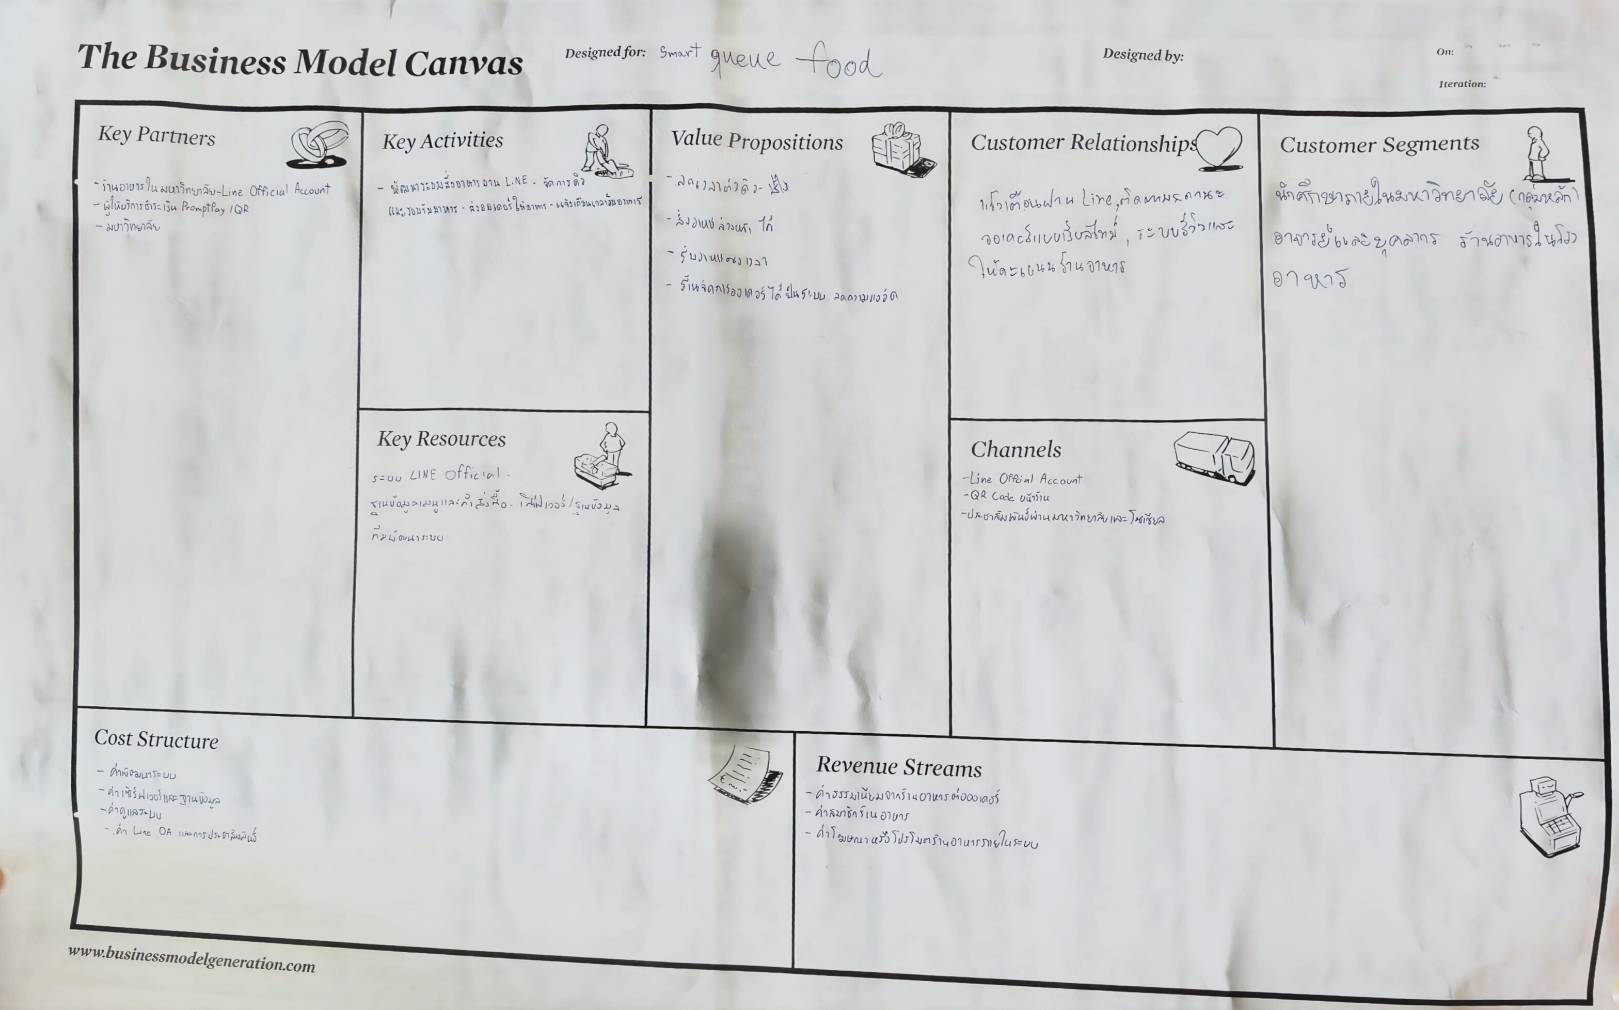 The Business Model Canvas
Designed for: Smart queue food
Designed by:
On:
Iteration:
Key Partners
- ร้านอาหารในมหาวิทยาลัย-Line Official Account
- ผู้ให้บริการชำระเงิน PromptPay /QR
- มหาวิทยาลัย
Key Activities
- พัฒนาระบบสั่งอาหารผ่าน LINE - จัดการคิว
และรอบรับอาหาร - ส่งออเดอร์ให้ร้านอาหาร - แจ้งเตือนเวลารับอาหาร
Key Resources
ระบบ LINE Official -
ฐานข้อมูลเมนูและคำสั่งซื้อ - เซิฟเวอร์/ฐานข้อมูล
ทีมพัฒนาระบบ
Value Propositions
- ลดเวลาต่อคิว-
- สั่งอาหารล่วงหน้า ได้
- รับอาหารตรงเวลา
- ร้านจัดการออเดอร์ได้เป็นระบบ ลดความแออัด
Customer Relationships
แจ้งเตือนผ่าน Line, ติดตามสถานะ
ออเดอร์แบบเรียลไทม์, ระบบรีวิวและ
ให้คะแนนร้านอาหาร
Channels
-Line Official Account
-QR Code หน้าร้าน
-ประชาสัมพันธ์ผ่านมหาวิทยาลัยและโซเชียล
Customer Segments
นักศึกษาภายในมหาวิทยาลัย (กลุ่มหลัก)
อาจารย์และบุคลากร ร้านอาหารในโรง
อาหาร
Cost Structure
- ค่าพัฒนาระบบ
- ค่าเซิร์ฟเวอร์และฐานข้อมูล
- ค่าดูแลระบบ
- ค่า Line OA และการประชาสัมพันธ์
Revenue Streams
- ค่าธรรมเนียมจากร้านอาหารต่อออเดอร์
- ค่าสมาชิกร้านอาหาร
- ค่าโฆษณาหรือโปรโมตร้านอาหารภายในระบบ
www.businessmodelgeneration.com